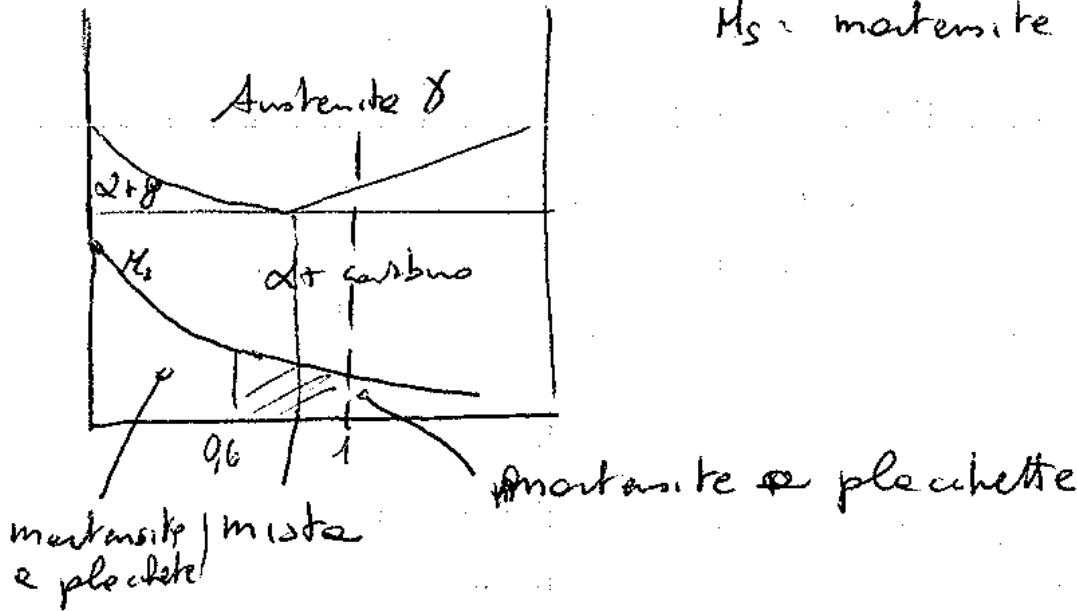 Ms: martensite
Austenite γ
α+γ
Ms
α+ carburo
0,6
1
martensite a placchette
martensite
a placchete
mista